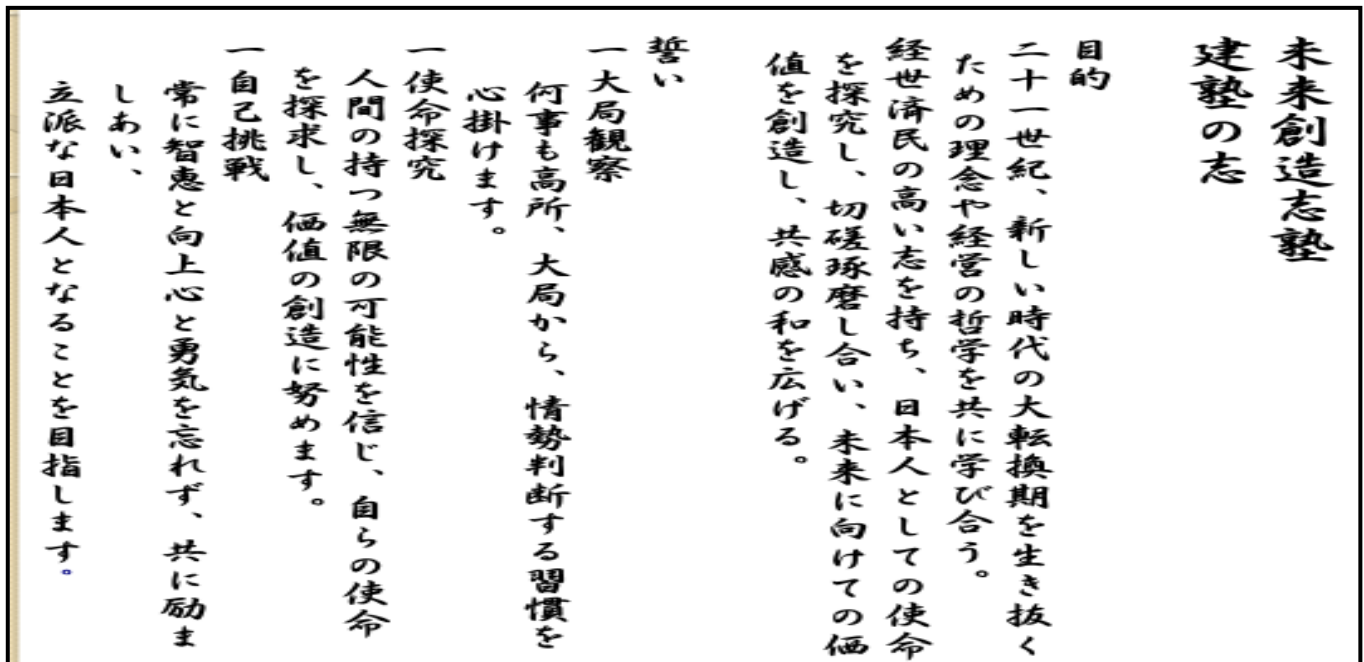 未来創造志塾
建塾の志
目的
二十一世紀、新しい時代の大転換期を生き抜く
ための理念や経営の哲学を共に学び合う。
経世済民の高い志を持ち、日本人としての使命
を探究し、切磋琢磨し合い、未来に向けての価
値を創造し、共感の和を広げる。
誓い
一大局観察
何事も高所、大局から、情勢判断する習慣を
心掛けます。
一使命探究
人間の持つ無限の可能性を信じ、自らの使命
を探求し、価値の創造に努めます。
一自己挑戦
常に智恵と向上心と勇気を忘れず、共に励ま
しあい、
立派な日本人となることを目指します。